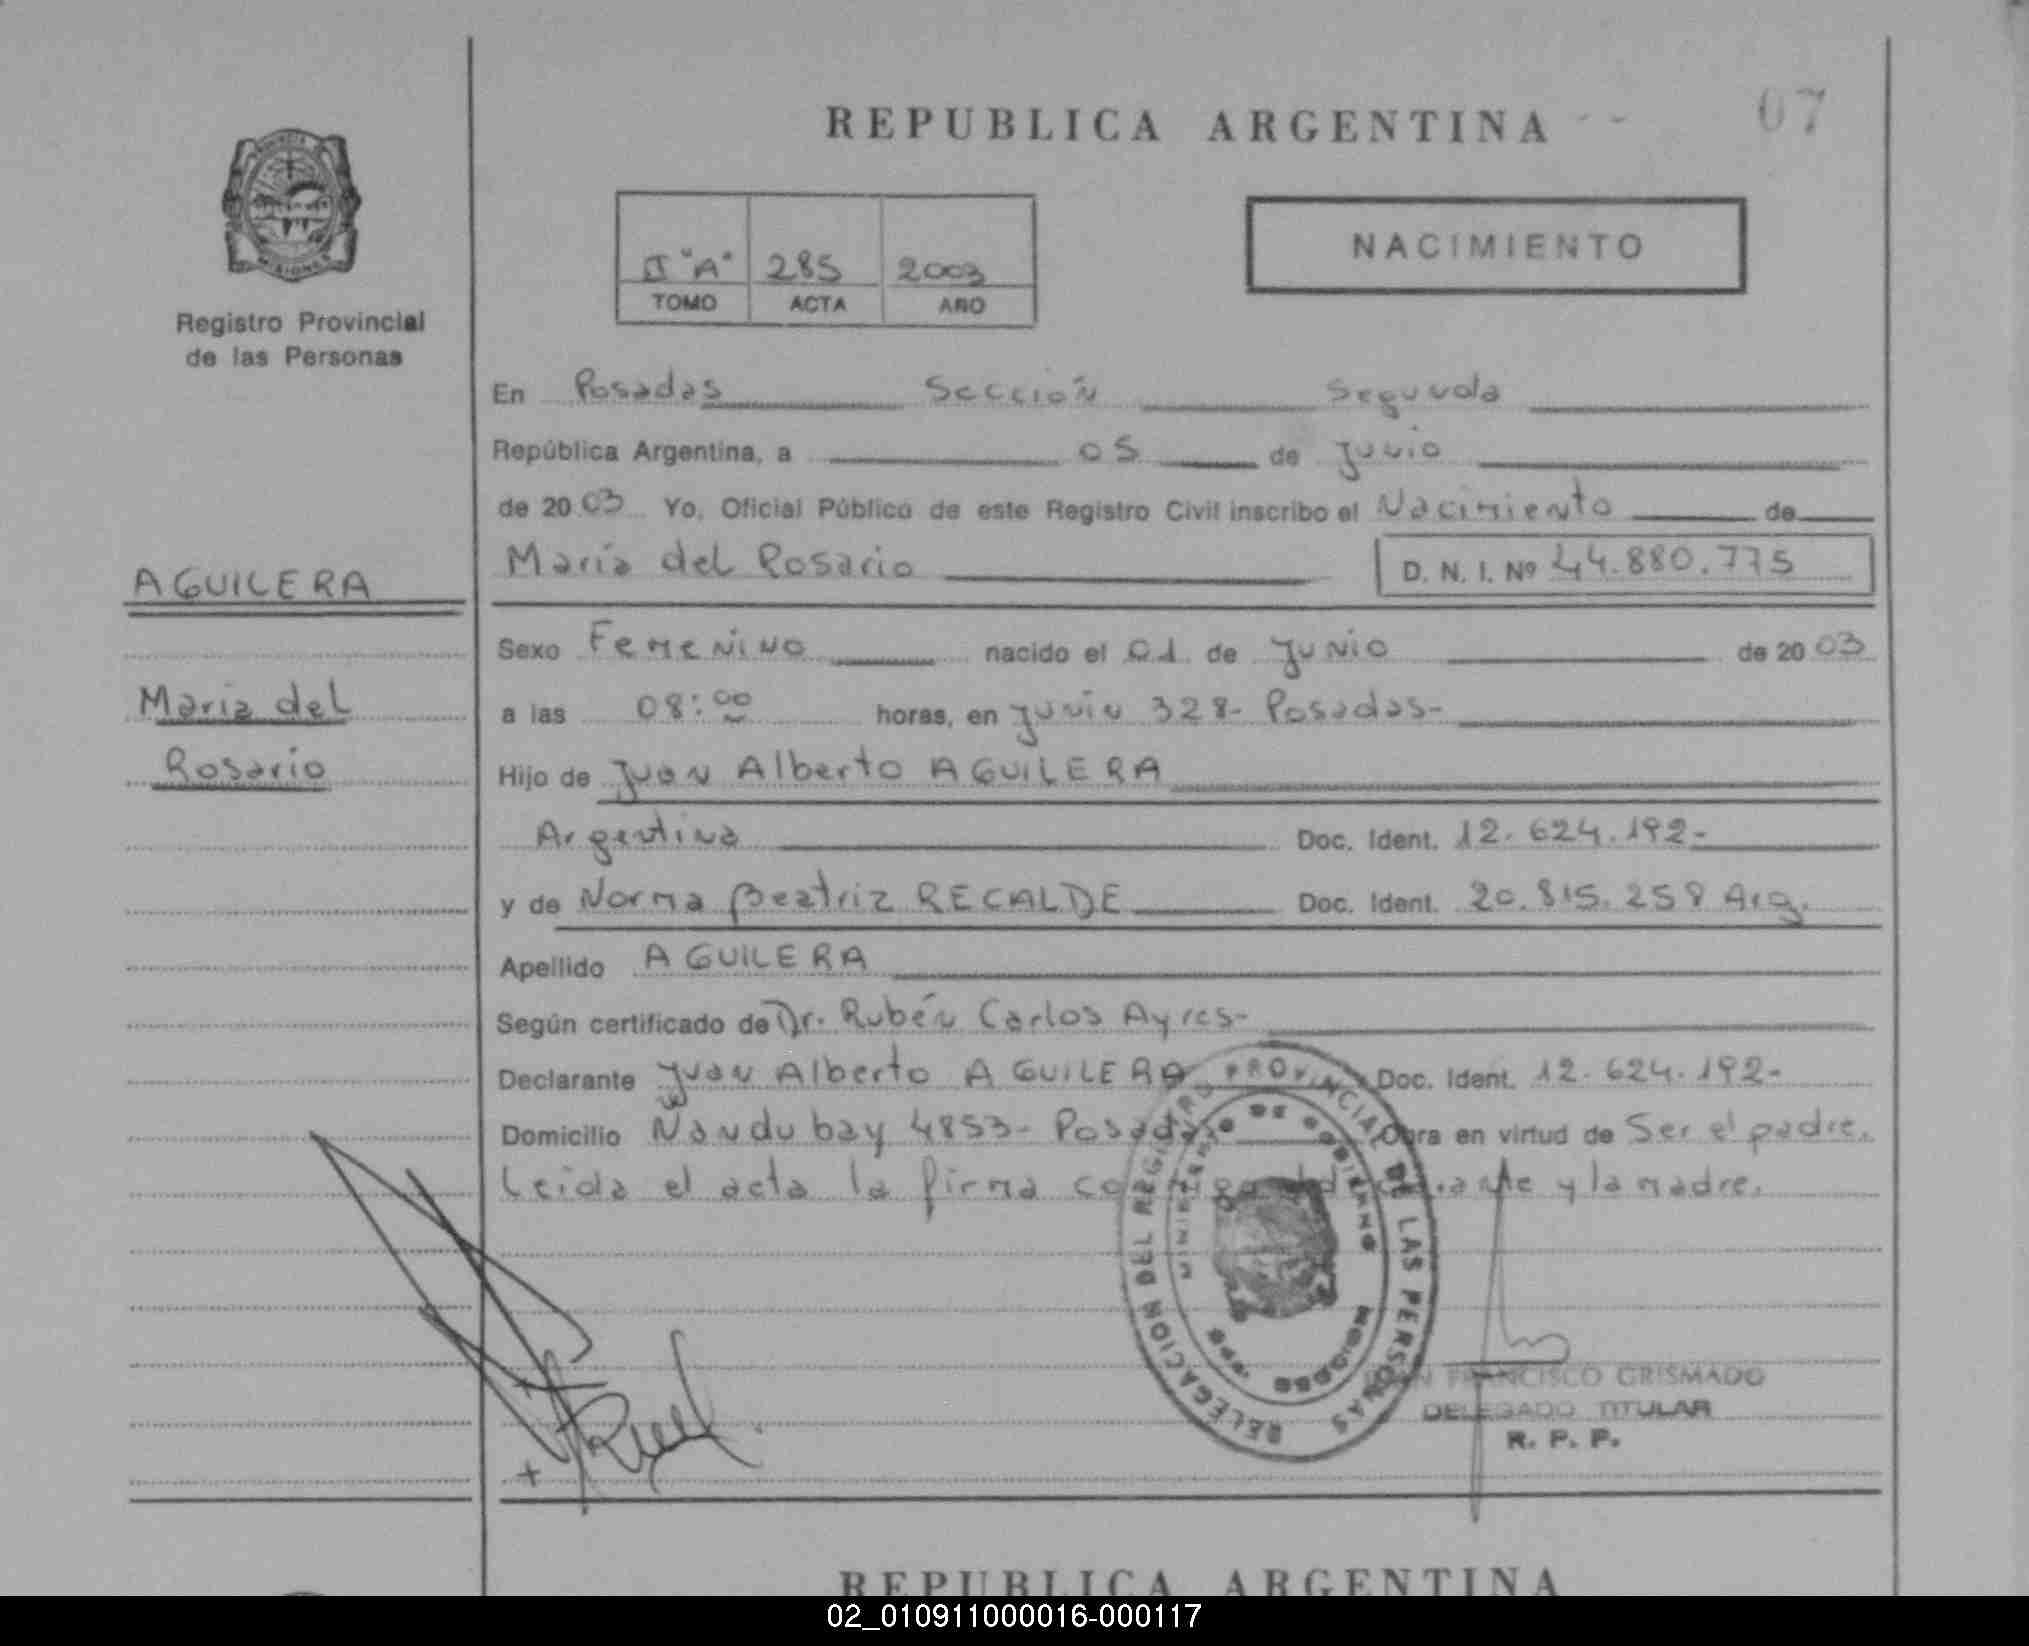 REPUBLICA ARGENTINA
07
MISIONES
Registro Provincial
de las Personas
II "A" 285 2003
TOMO ACTA AÑO
NACIMIENTO
En Posadas Sección Segunda
República Argentina, a 05 de Junio
de 2003 Yo, Oficial Público de este Registro Civil inscribo el Nacimiento de
María del Rosario D. N. I. Nº 44.880.775
AGUILERA
María del
Rosario
Sexo Femenino nacido el 01 de Junio de 2003
a las 08:00 horas, en Junin 328- Posadas-
Hijo de Juan Alberto AGUILERA
Argentina Doc. Ident. 12.624.192-
y de Norma Beatriz RECALDE Doc. Ident. 20.815.258 Arg.
Apellido AGUILERA
Según certificado de Dr. Rubén Carlos Ayres-
Declarante Juan Alberto AGUILERA Doc. Ident. 12.624.192-
Domicilio Ñandubay 4853- Posadas Obra en virtud de Ser el padre.
Leida el acta la firma conmigo el declarante y la madre.
DELEGACION DEL REGISTRO PROVINCIAL DE LAS PERSONAS
MINISTERIO DE GOBIERNO
FRANCISCO GRISMADO
DELEGADO TITULAR
R. P. P.
REPUBLICA ARGENTINA
02_010911000016-000117